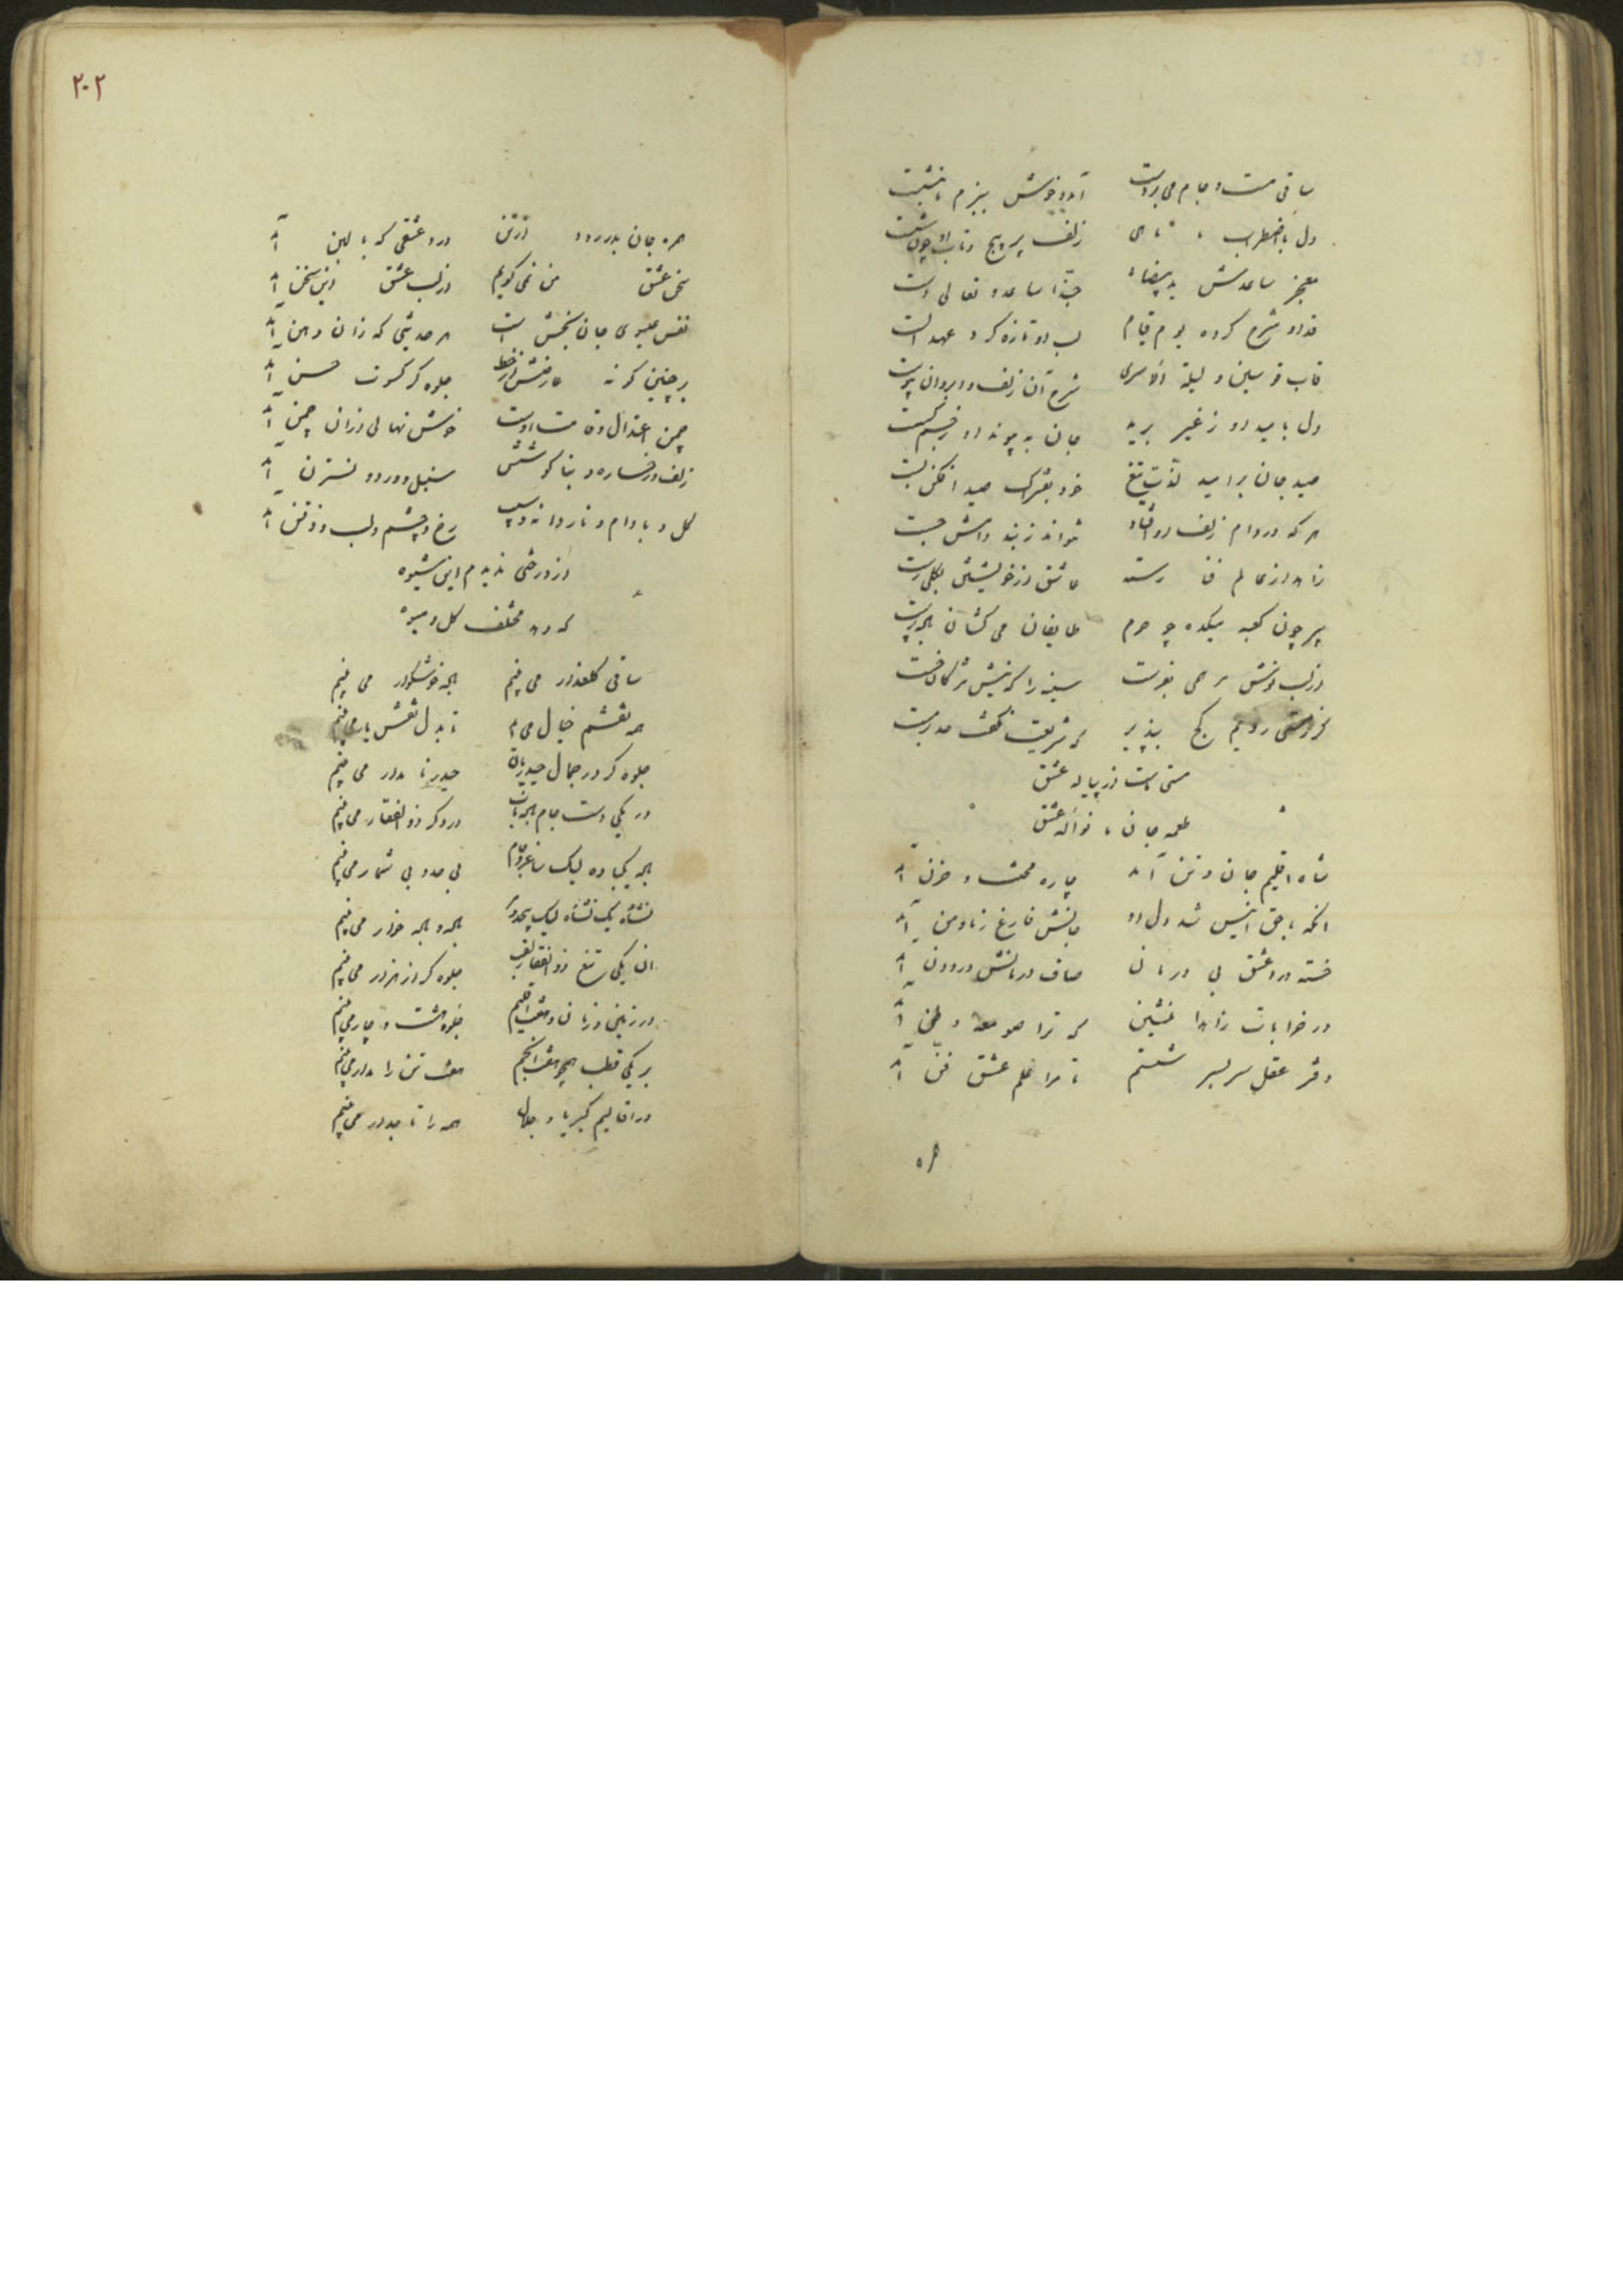 ساقی مست و جام می بر دست آمد و خوش ببزم ما بنشست
دل با اضطراب ما ماهی زلف پر پیچ و تاب او چون شست
معجز ساعدش ید بیضاء حبذا ساعد و تعالی دست
قد او شرح کرده یوم قیام لب او تازه کرد عهد الست
قاب قوسین و لیلة الاسری شرح آن زلف و ابروان
دل بامید او ز غیر برید جان به پیوند او
صید جان بر امید لذت تیغ خود بفتراک صید افکن بست
هر که در دام زلف او افتاد نتواند ز بند دامش جست
زاهد از عالم فنا رسته عاشق از خویشتن بکلی رست
پیر چون کعبه میکده چو حرم طایفان می کشان
از لب نوش مرحمی بفرست سینه را که نیش مژگان خست
راستی رویم کج بپذیر
مستی ماست از پیاله عشق
طعمه جان ما نواله عشق
شاه اقلیم جان و تن آمد چاره محنت و حزن آمد
آنکه با حق انیس شد دل او جانش فارغ ز ما و من آمد
خسته درد عشق بی درمان صاف درمانش درد دن آمد
در خرابات زاهدا منشین که ترا صومعه وطن آمد
دفتر عقل سربسر شستم تا مرا علم عشق فن آمد
همره
۲۰۲
همره جان بدر رود از تن درد عشقی که با لبن آمد
سخن عشق من نمی گویم از لب عشق این سخن آمد
نفس عیسوی جان بخش است هر حدیثی که زان دهن آمد
بر چنین گونه عارضش از خط جلوه گر کسوت حسن آمد
چمن اعتدال قامت اوست خوش نهالی از آن چمن آمد
زلف و رخساره و بناگوشش سنبل و ورد و نسترن آمد
گل و بادام و ناردانه و سیب رخ و چشم و لب و ذقن آمد
از درختی ندیدم این شیوه
که دهد مختلف گل و میوه
ساقی گلعذار می بینم باده خوشگوار می بینم
همه نقشم خیال می تا بدل نقش یار می بینم
جلوه گر در جمال حیدریان حیدر نامدار می بینم
در یکی دست جام در دگر ذوالفقار می بینم
باده یک باده لیک ساغر و جام بی حد و بی شمار می بینم
نشأه یک نشأه لیک
آن یکی تیغ ذوالفقار لقب جلوه گر از هزار می بینم
در زمین و زمان و هفت اقلیم جلوه هشت و چار می بینم
بر یکی قطب همچو هفت انجم هفت تن را مدار می بینم
در اقالیم کبریا و جلال همه را تاجدار می بینم